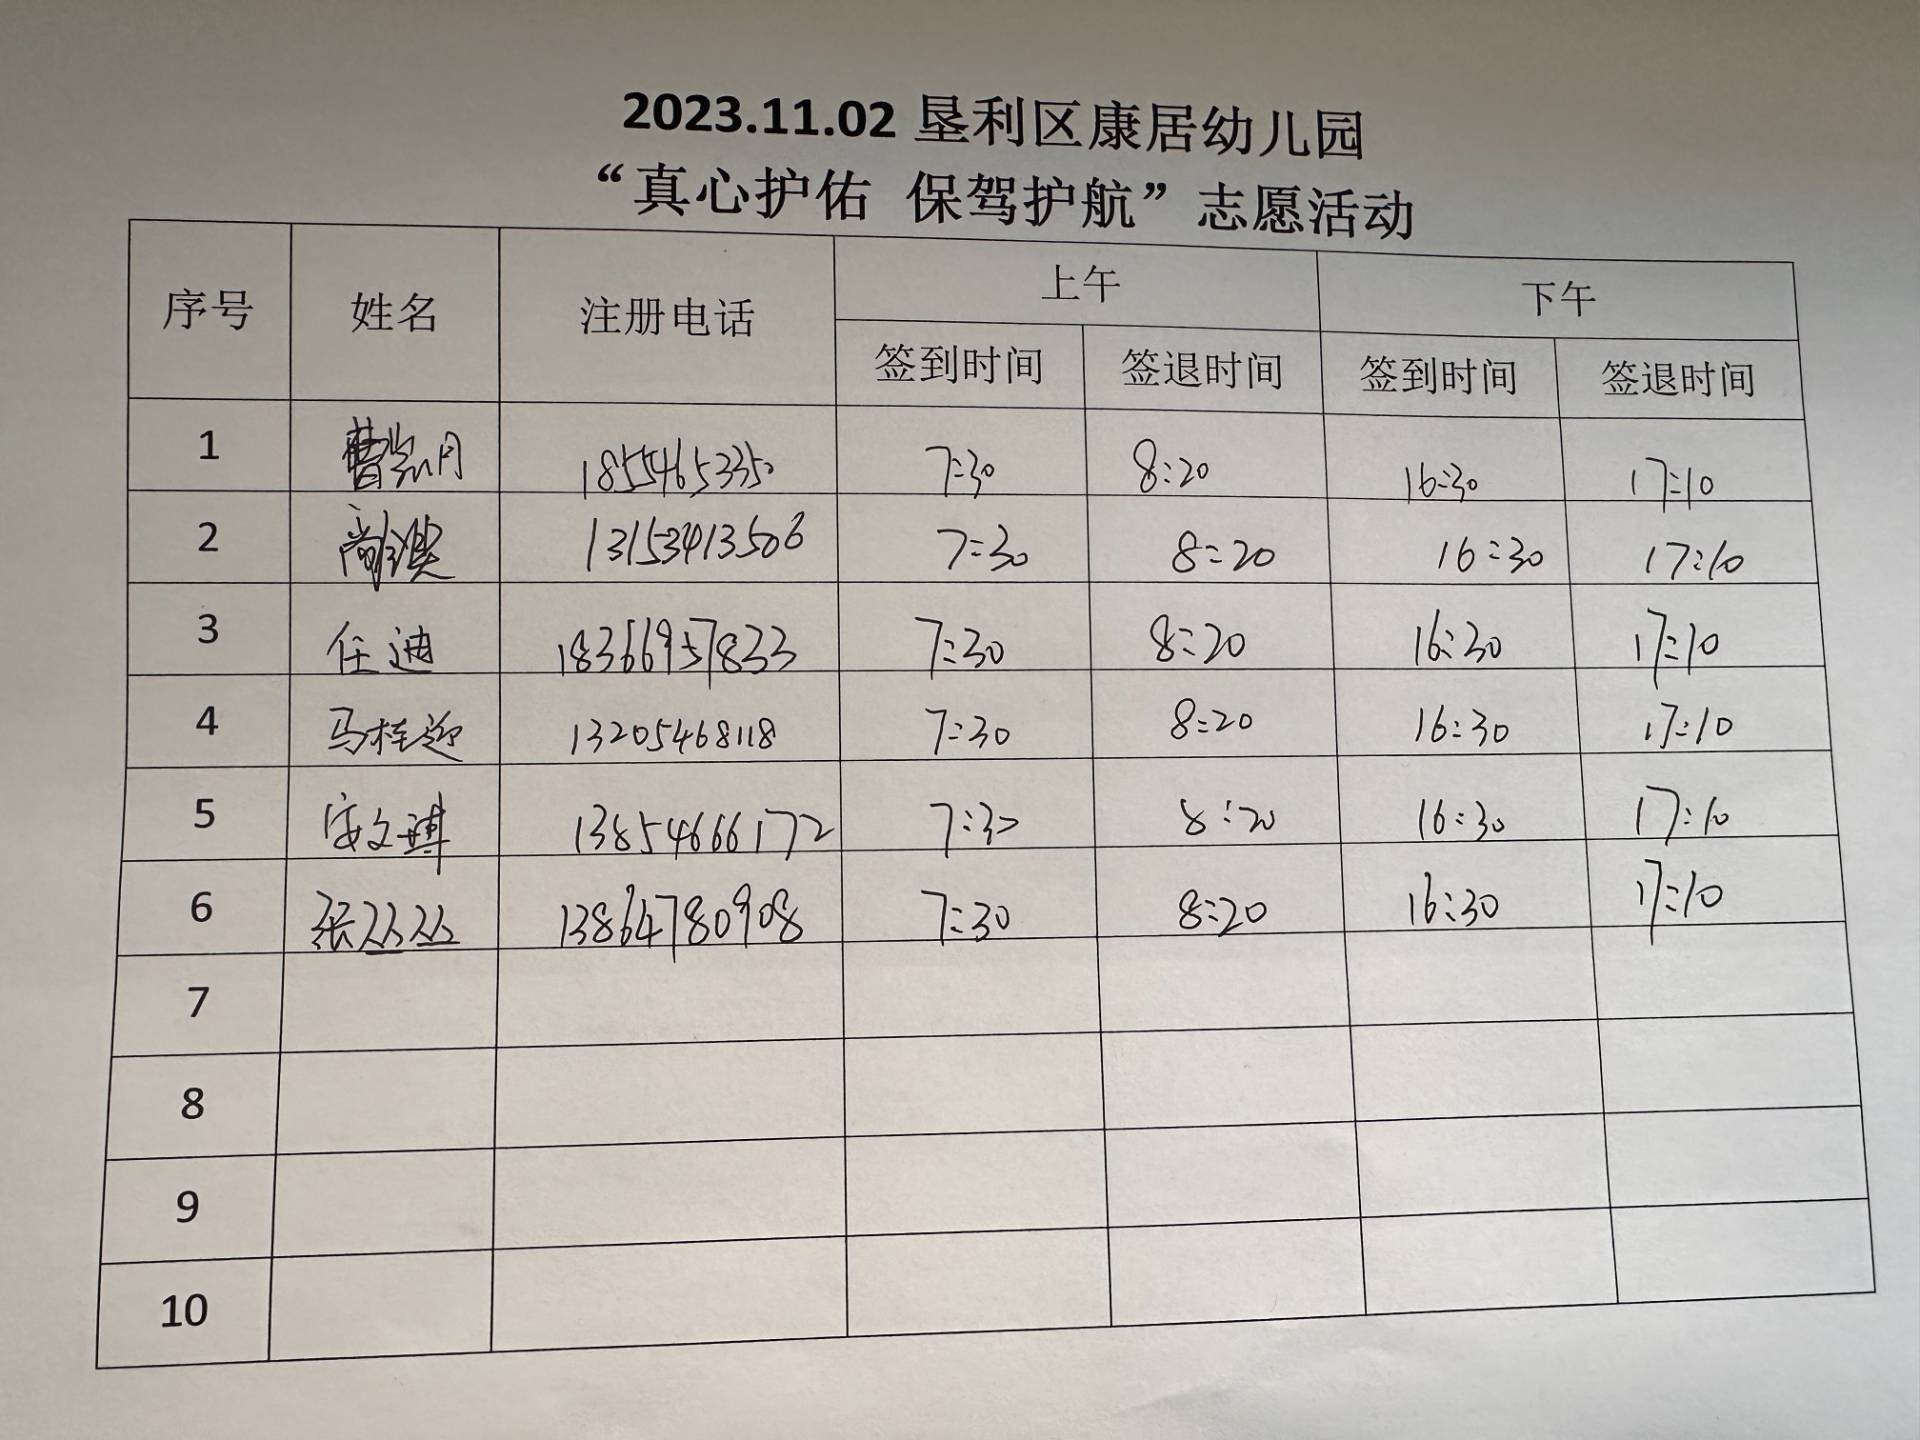 2023.11.02 垦利区康居幼儿园
“真心护佑 保驾护航”志愿活动
序号 姓名 注册电话 上午 下午
签到时间 签退时间 签到时间 签退时间
1 曹凯月 18554653350 7:30 8:20 16:30 17:10
2 13153413506 7:30 8:20 16:30 17:10
3 任迪 18366957833 7:30 8:20 16:30 17:10
4 马桂迎 13205468118 7:30 8:20 16:30 17:10
5 安文博 13854666172 7:30 8:20 16:30 17:10
6 张丛丛 13864780908 7:30 8:20 16:30 17:10
7
8
9
10